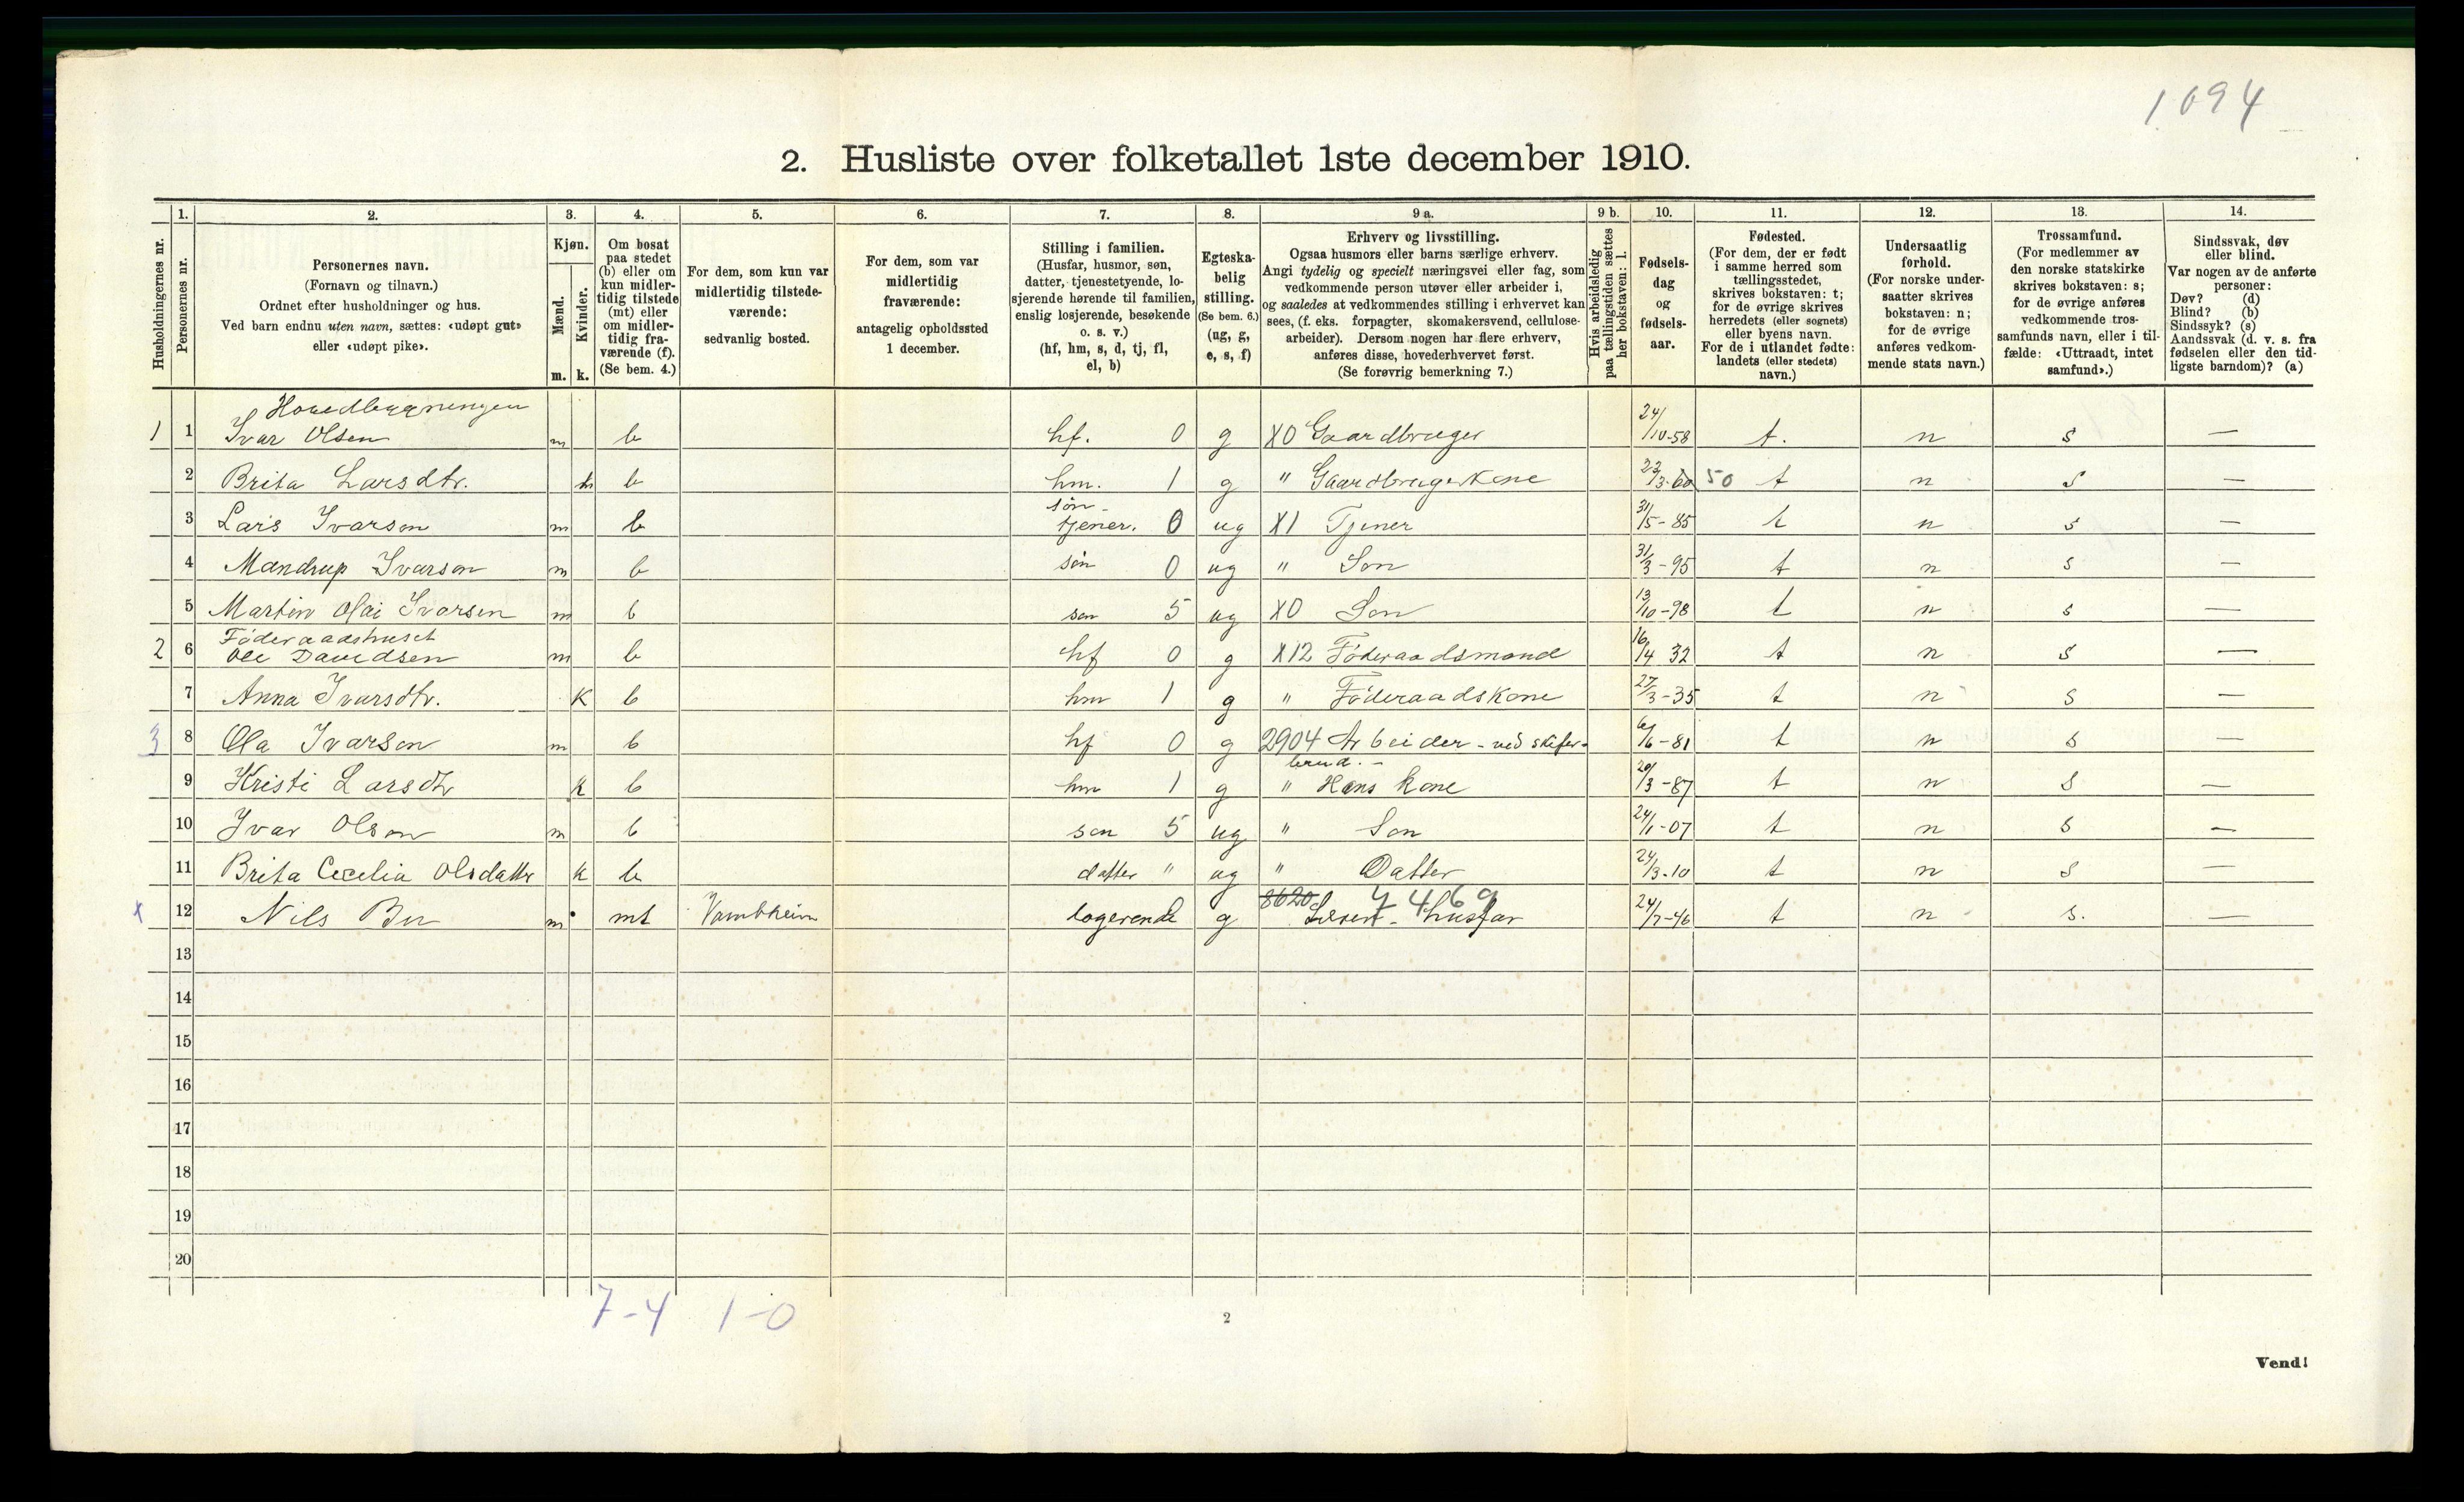 1094
2. Husliste over folketallet 1ste december 1910.
Husholdningernes nr.
1.
Personernes nr.
2.
Personernes navn.
(Fornavn og tilnavn.)
Ordnet efter husholdninger og hus.
Ved barn endnu uten navn, sættes: «udøpt gut»
eller «udøpt pike».
3.
Kjøn.
Mænd.
Kvinder.
m. k.
4.
Om bosat
paa stedet
(b) eller om
kun midler-
tidig tilstede
(mt) eller
om midler-
tidig fra-
værende (f).
(Se bem. 4.)
5.
For dem, som kun var
midlertidig tilstede-
værende:
sedvanlig bosted.
6.
For dem, som var
midlertidig
fraværende:
antagelig opholdssted
1 december.
7.
Stilling i familien.
(Husfar, husmor, søn,
datter, tjenestetyende, lo-
sjerende hørende til familien,
enslig losjerende, besøkende
o. s. v.)
(hf, hm, s, d, tj, fl,
el, b)
8.
Egteska-
belig
stilling.
(Se bem. 6.)
(ug, g,
e, s, f)
9 a.
Erhverv og livsstilling.
Ogsaa husmors eller barns særlige erhverv.
Angi tydelig og specielt næringsvei eller fag, som
vedkommende person utøver eller arbeider i,
og saaledes at vedkommendes stilling i erhvervet kan
sees, (f. eks. forpagter, skomakersvend, cellulose-
arbeider). Dersom nogen har flere erhverv,
anføres disse, hovederhvervet først.
(Se forøvrig bemerkning 7.)
9 b.
Hvis arbeidsledig
paa tællingstiden sættes
her bokstaven: l.
10.
Fødsels-
dag
og
fødsels-
aar.
11.
Fødested.
(For dem, der er født
i samme herred som
tællingsstedet,
skrives bokstaven: t;
for de øvrige skrives
herredets (eller sognets)
eller byens navn.
For de i utlandet fødte:
landets (eller stedets)
navn.)
12.
Undersaatlig
forhold.
(For norske under-
saatter skrives
bokstaven: n;
for de øvrige
anføres vedkom-
mende stats navn.)
13.
Trossamfund.
(For medlemmer av
den norske statskirke
skrives bokstaven: s;
for de øvrige anføres
vedkommende tros-
samfunds navn, eller i til-
fælde: «Uttraadt, intet
samfund».)
14.
Sindssvak, døv
eller blind.
Var nogen av de anførte
personer:
Døv? (d)
Blind? (b)
Sindssyk? (s)
Aandssvak (d. v. s. fra
fødselen eller den tid-
ligste barndom)? (a)
Hovedbygningen
1 1 Ivar Olsen m b hf. 0 g X0 Gaardbruger 24/10-58 t. n s —
2 Brita Larsdtr. k b hm. 1 g " Gaardbrugerkone 23/3-60 50 t n s —
søn -
3 Lars Ivarson m b tjener. 0 ug X1 Tjener 31/5-85 t n s —
4 Mandrup Ivarson m b søn 0 ug " Son 31/3-95 t n s —
5 Martin Olai Ivarsen m b son 5 ug X0 Son 13/10-98 t n s —
Føderaadshuset
2 6 Ole Davidsen m b hf 0 g X12 Føderaadsmand 16/4 32 t n s —
7 Anna Ivarsdtr. k b hm 1 g " Føderaadskone 27/3-35 t n s —
3 8 Ola Ivarson m b hf 0 g 2904 Arbeider - ved skifer- 6/6-81 t n s —
brud. -
9 Kristi Larsdtr k b hm 1 g " Hans kone 20/3-87 t n s —
10 Ivar Olson m b son 5 ug " Son 24/1-07 t n s —
11 Brita Cecelia Olsdattr k b datter " ug " Datter 24/3-10 t n s —
8620 7469
x 12 Nils Bu m mt logerende g husfar 24/7-46 t n s. —
13
14
15
16
17
18
19
20
7-4 1-0
2
Vend!